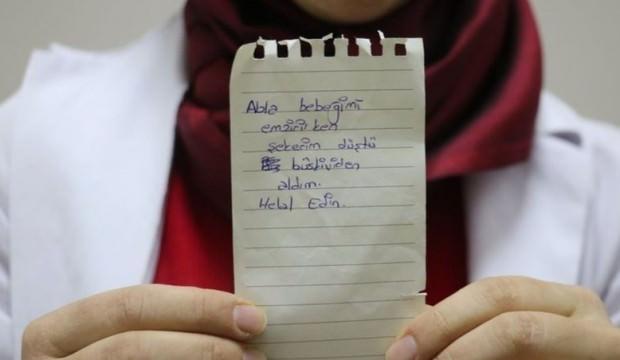 Abla bebeğimi
emziriken
şekerim düştü
büsküviden
aldım.
Helal Edin.